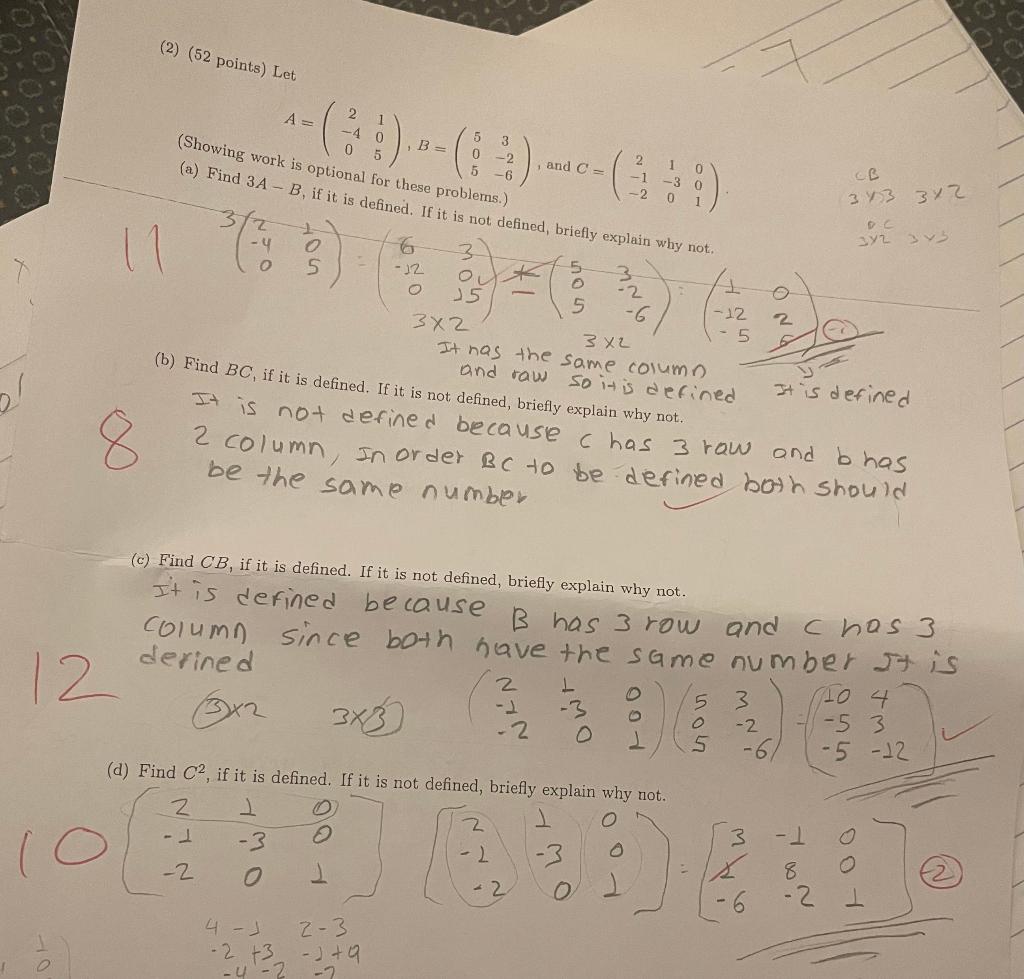 -7
(2) (52 points) Let
A = ( 2 1 -4 0 0 5 ), B = ( 5 3 0 -2 5 -6 ), and C = ( 2 1 0 -1 -3 0 -2 0 1 ).
CB
3x3 3x2
BC
3x2 3x3
(Showing work is optional for these problems.)
(a) Find 3A − B, if it is defined. If it is not defined, briefly explain why not.
11
3 ( 2 1
-4 0
0 5 ) = ( 6 3
-12 0
0 15 ) − ( 5 3
0 -2
5 -6 ) = ( 1 0
-12 2
-5 6 ) -1
3x2
3x2
It has the same column
and raw so it is defined
It is defined
(b) Find BC, if it is defined. If it is not defined, briefly explain why not.
8
It is not defined because c has 3 raw and b has
2 column, In order BC to be defined both should
be the same number
(c) Find CB, if it is defined. If it is not defined, briefly explain why not.
12
It is defined because B has 3 row and c has 3
column since both have the same number It is
defined
3x2 3x3
( 2 1 0
-1 -3 0
-2 0 1 ) ( 5 3
0 -2
5 -6 ) = ( 10 4
-5 3
-5 -12 )
(d) Find C², if it is defined. If it is not defined, briefly explain why not.
10
[ 2 1 0
-1 -3 0
-2 0 1 ] [ 2 1 0
-1 -3 0
-2 0 1 ] = [ 3 -1 0
1 8 0
-6 -2 1 ] -2
4 -1 2-3
-2 +3 -1+9
-4 -2 -2
1
0